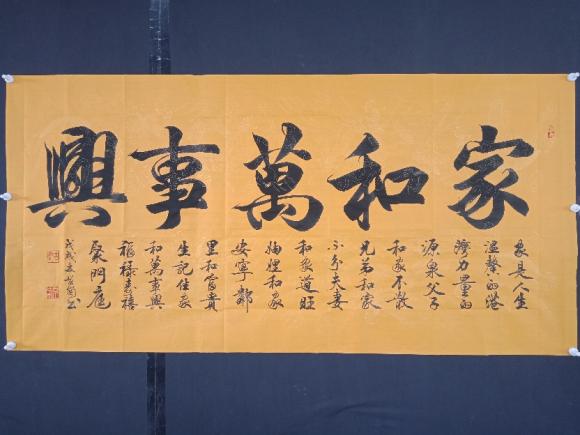 家和萬事興
家是人生
温馨的港
湾力量的
源泉父子
和家不散
兄弟和家
不分夫妻
和家道旺
妯娌和家
安寧鄰
里和富貴
生記住家
和萬事興
福祿壽禧
聚門庭
戊戌